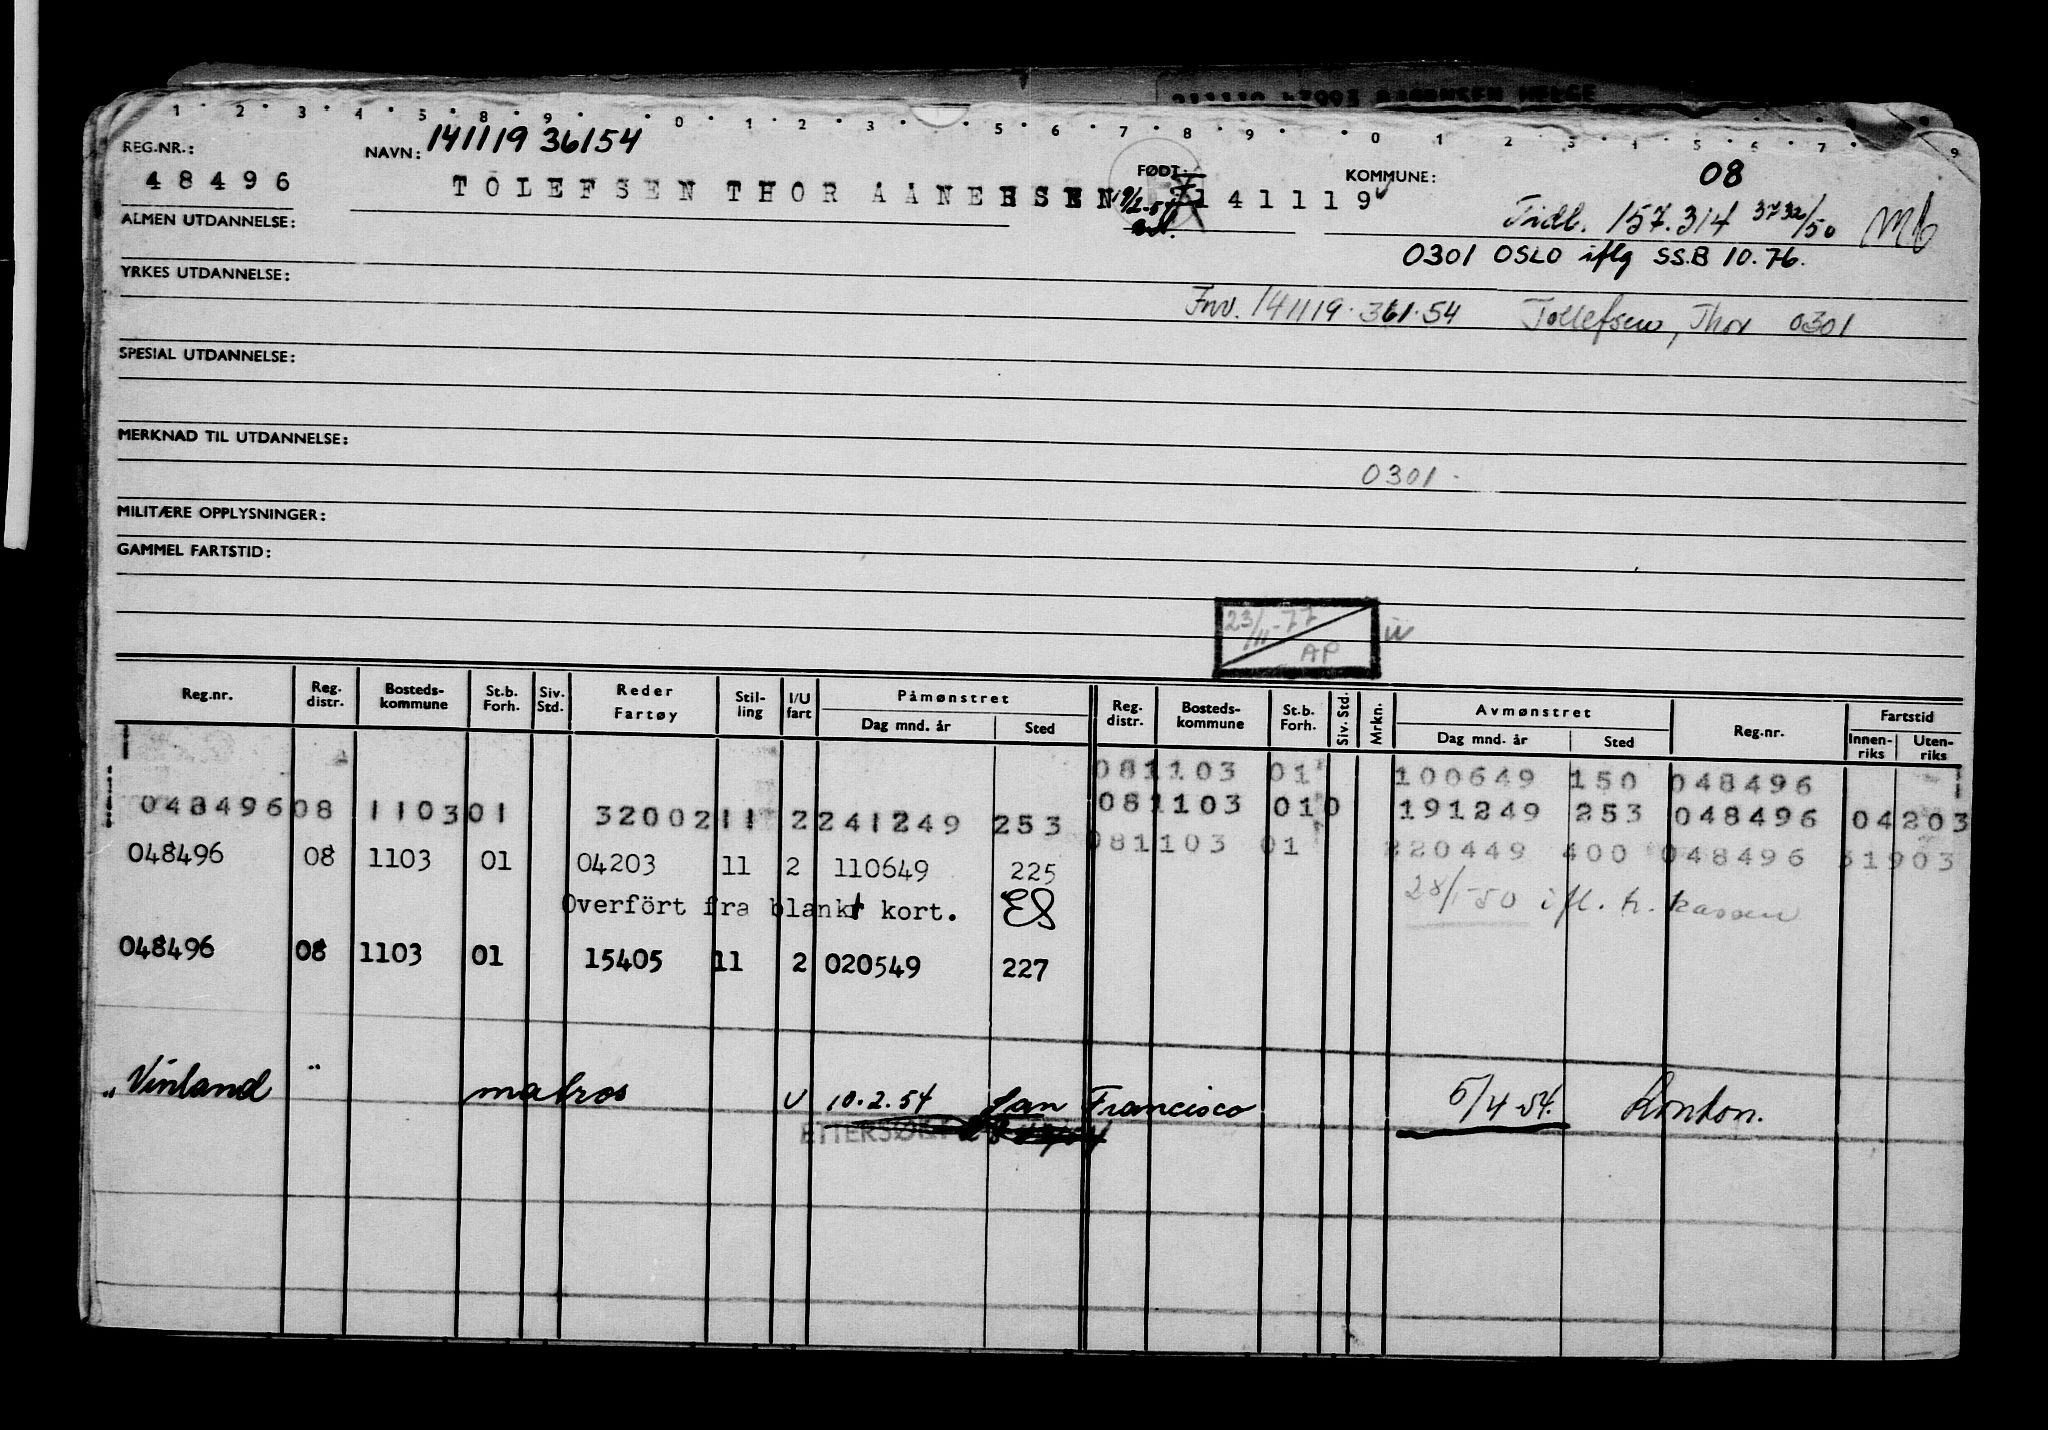 211119 47993 BJØRNSEN HELGE
1 2 3 4 5 8 9 0 1 2 3 5 6 7 8 9 0 1 2 3 4 5 6 7 9
REG.NR.: NAVN: 141119 36154 FØDT: KOMMUNE: 08
48496 TOLEFSEN THOR AANENSEN 141119
ALMEN UTDANNELSE: Tidl. 157.314 3732/50 Mb
0301 OSLO iflg SS.B 10.76.
YRKES UTDANNELSE:
Fnr. 141119.361.54 Tollefsen, Thor 0301
SPESIAL UTDANNELSE:
MERKNAD TIL UTDANNELSE:
0301.
MILITÆRE OPPLYSNINGER:
GAMMEL FARTSTID:
23/11-77
AP
Reg.nr. Reg. distr. Bosteds-kommune St.b. Forh. Siv. Std. Reder Fartøy Stil-ling I/U fart Påmønstret Dag mnd. år Sted Reg. distr. Bosteds-kommune St.b. Forh. Siv. Std. Mrkn. Avmønstret Dag mnd. år Sted Reg.nr. Fartstid Innen-riks Uten-riks
081103 01 100649 150 048496
048496 08 1103 01 32002 11 2 241249 253 081103 010 191249 253 048496 04203
048496 08 1103 01 04203 11 2 110649 225 081103 01 220449 400 048496 31903
Overfört fra blankt kort. ES 28/1-50 ifl. tr. kassen
048496 08 1103 01 15405 11 2 020549 227
"Vinland" matros U 10.2.54 San Francisco 5/4-54. London.
ETTERSØKT